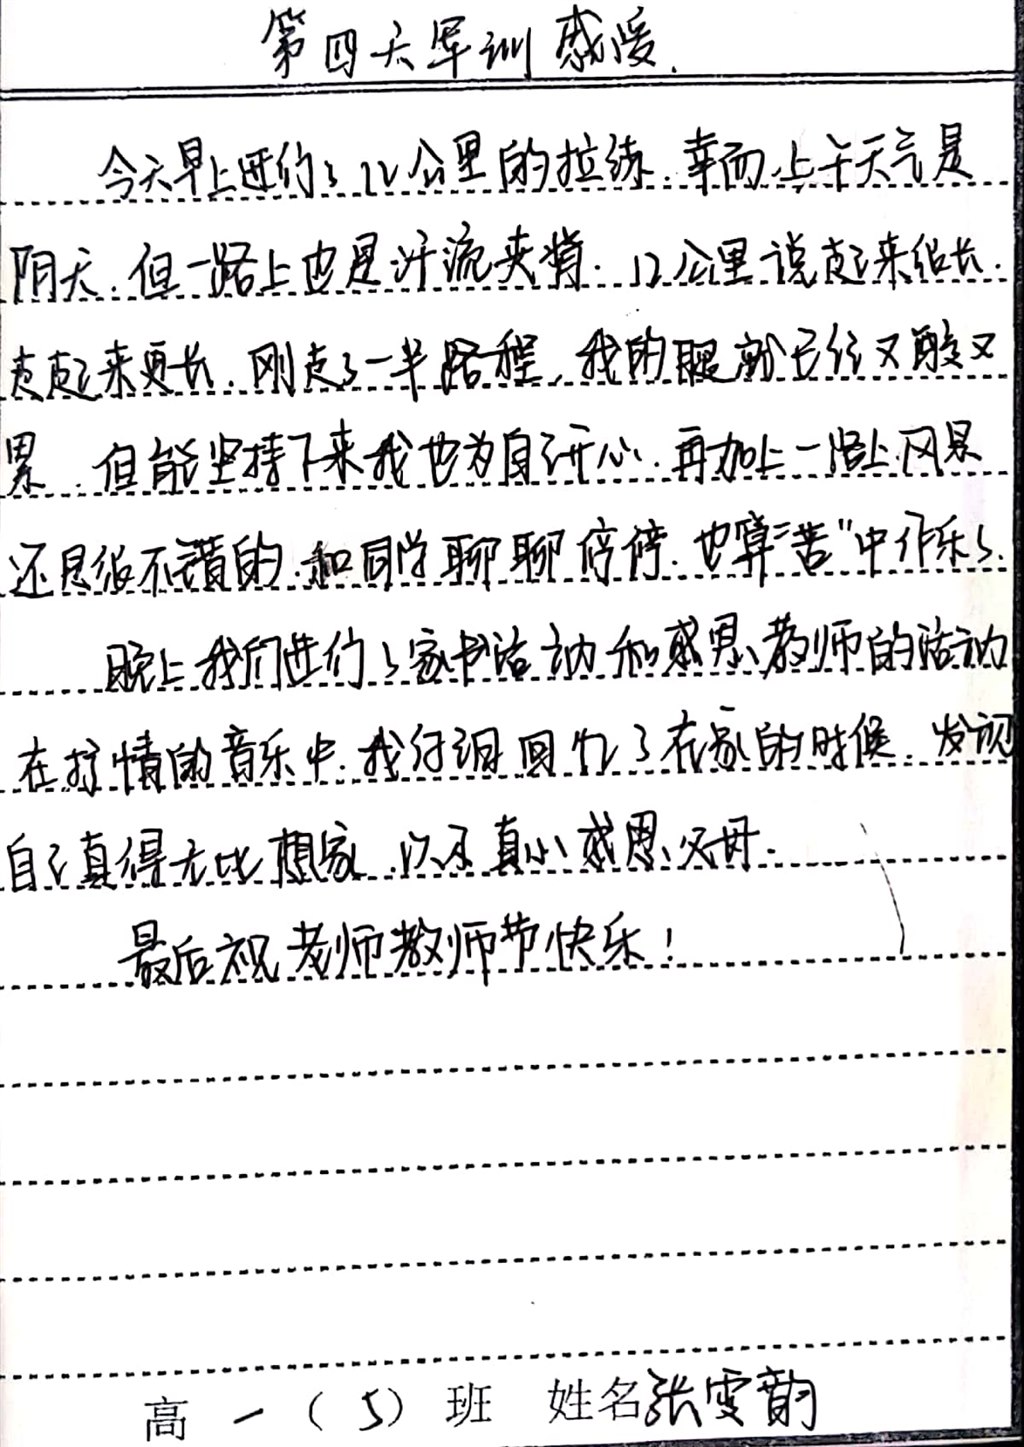 第四天军训感受.
今天早上进行了12公里的拉练.幸而上午天气是
阴天.但一路上也是汗流夹背.12公里说起来很长.
走起来更长.刚走了一半路程,我的腿就已经又酸又
累.但能坚持下来我也为自己开心.再加上一路上风景
还是很不错的.和同学聊聊停停.也算“苦”中作乐了.
晚上我们进行了家书活动和感恩教师的活动
在抒情的音乐中.我仔细回忆了在家的时候.发现
自己真得无比想家.以及真心感恩父母.
最后祝老师教师节快乐!
高一(5)班 姓名张雯韵